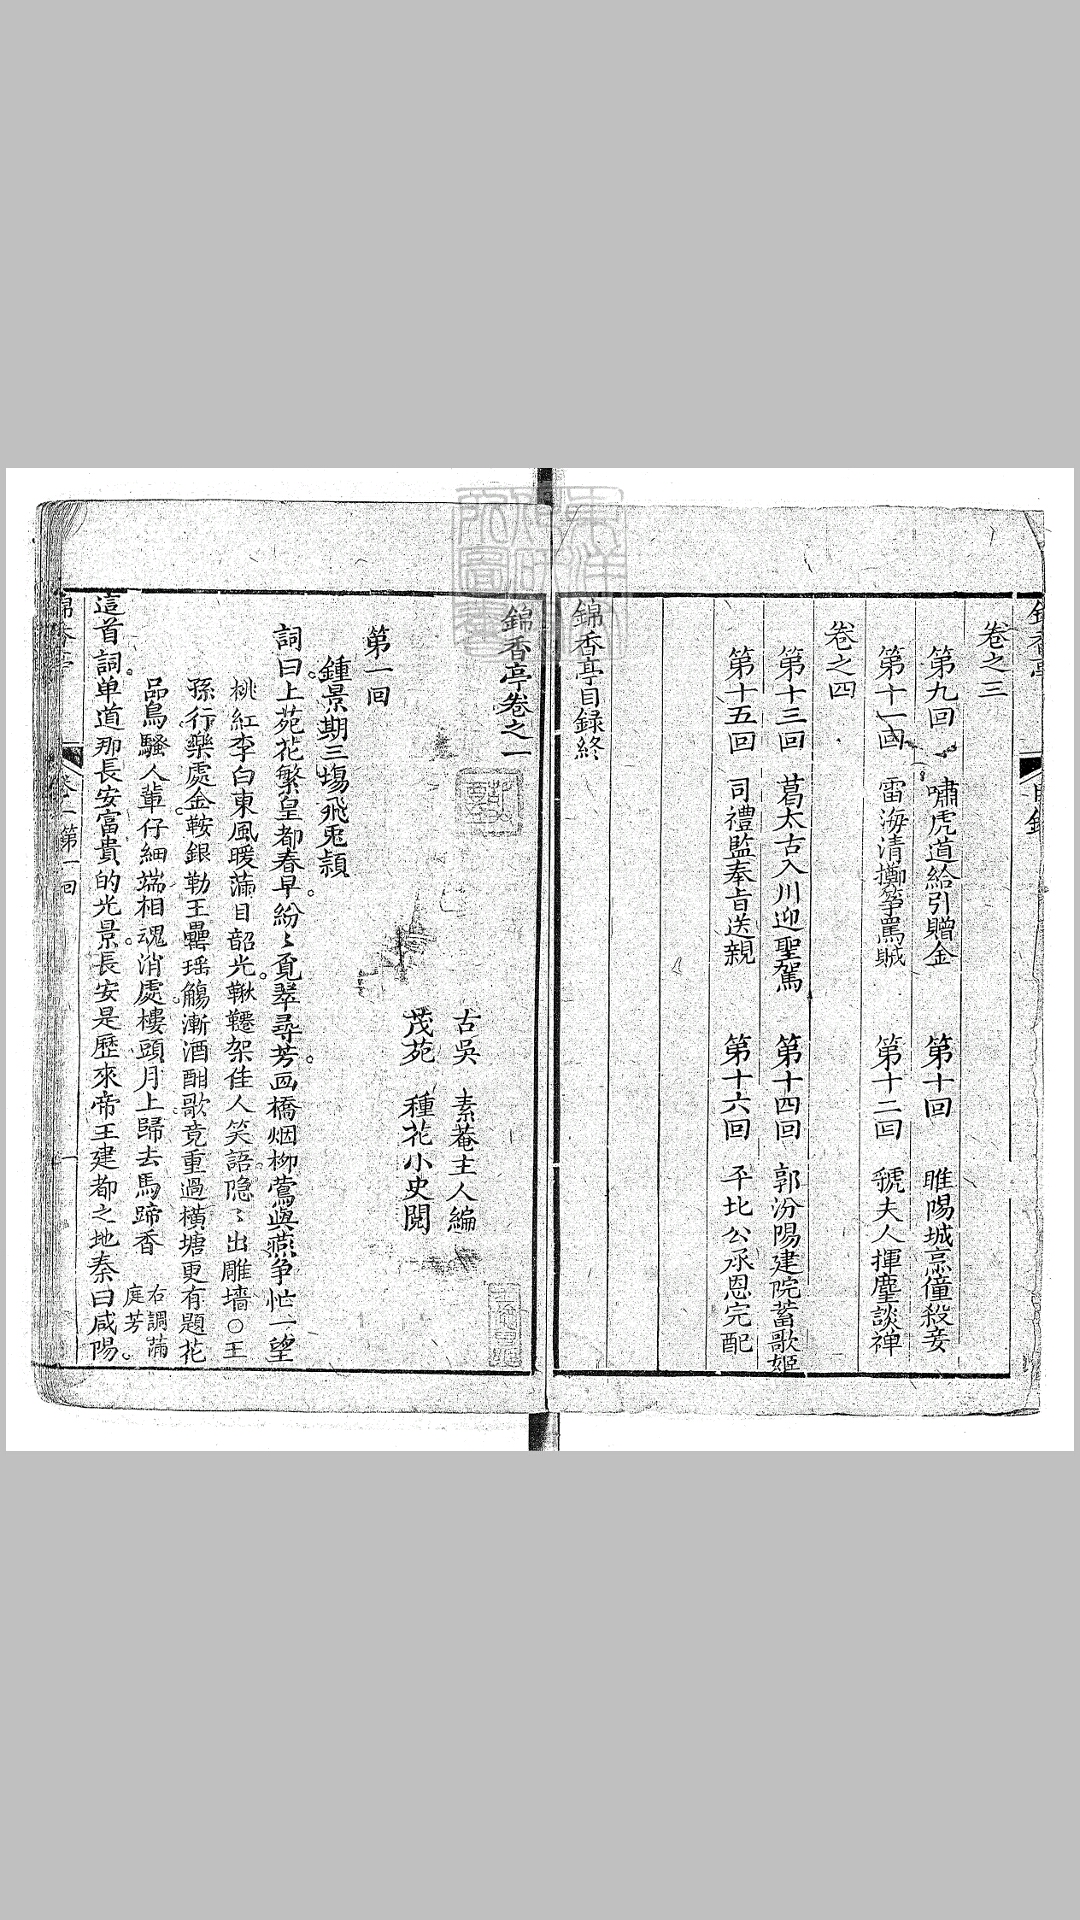 錦香亭
目錄
卷之三
第九回　嘯虎道給引贈金　第十回　睢陽城烹僮殺妾
第十一回　雷海清擲箏罵賊　第十二回　虢夫人揮麈談禪
卷之四
第十三回　葛太古入川迎聖駕　第十四回　郭汾陽建院蓄歌姬
第十五回　司禮監奉旨送親　第十六回　平比公承恩完配
錦香亭目録終
錦香亭卷之一
古吳　素菴主人編
茂苑　種花小史閱
第一回
鍾景期三塲飛兎頴
詞曰上苑花繁皇都春早。紛〻覔翠尋芳。画橋烟柳鶯與燕爭忙一望
桃紅李白東風暖滿目韶光。鞦韆架佳人笑語。隐〻出雕墻○王
孫行樂處金鞍銀勒玉罍瑶觴漸酒酣歌竟重過橫塘更有題花
品鳥騷人輩仔細端相。魂消處樓頭月上歸去馬蹄香　右調蒲庭芳
這首詞。单道那長安富貴的光景。長安是歷來帝王建都之地秦曰咸陽。
錦香亭
第一回
一